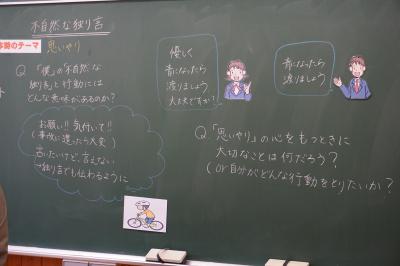 不自然な独り言
本時のテーマ
思いやり
Q 「僕」の「不自然な
独り言」と行動には
どんな意味があるのか?
お願い!! 気付いて!!
(事故に遭ったら大変)
言いたいけど、言えない
→独り言でも伝わるように
優しく
青になったら
渡りましょう
大丈夫ですか?
青になったら
渡りましょう
Q 「思いやり」の心をもつときに
大切なことは何だろう?
(or自分がどんな行動をとりたいか?